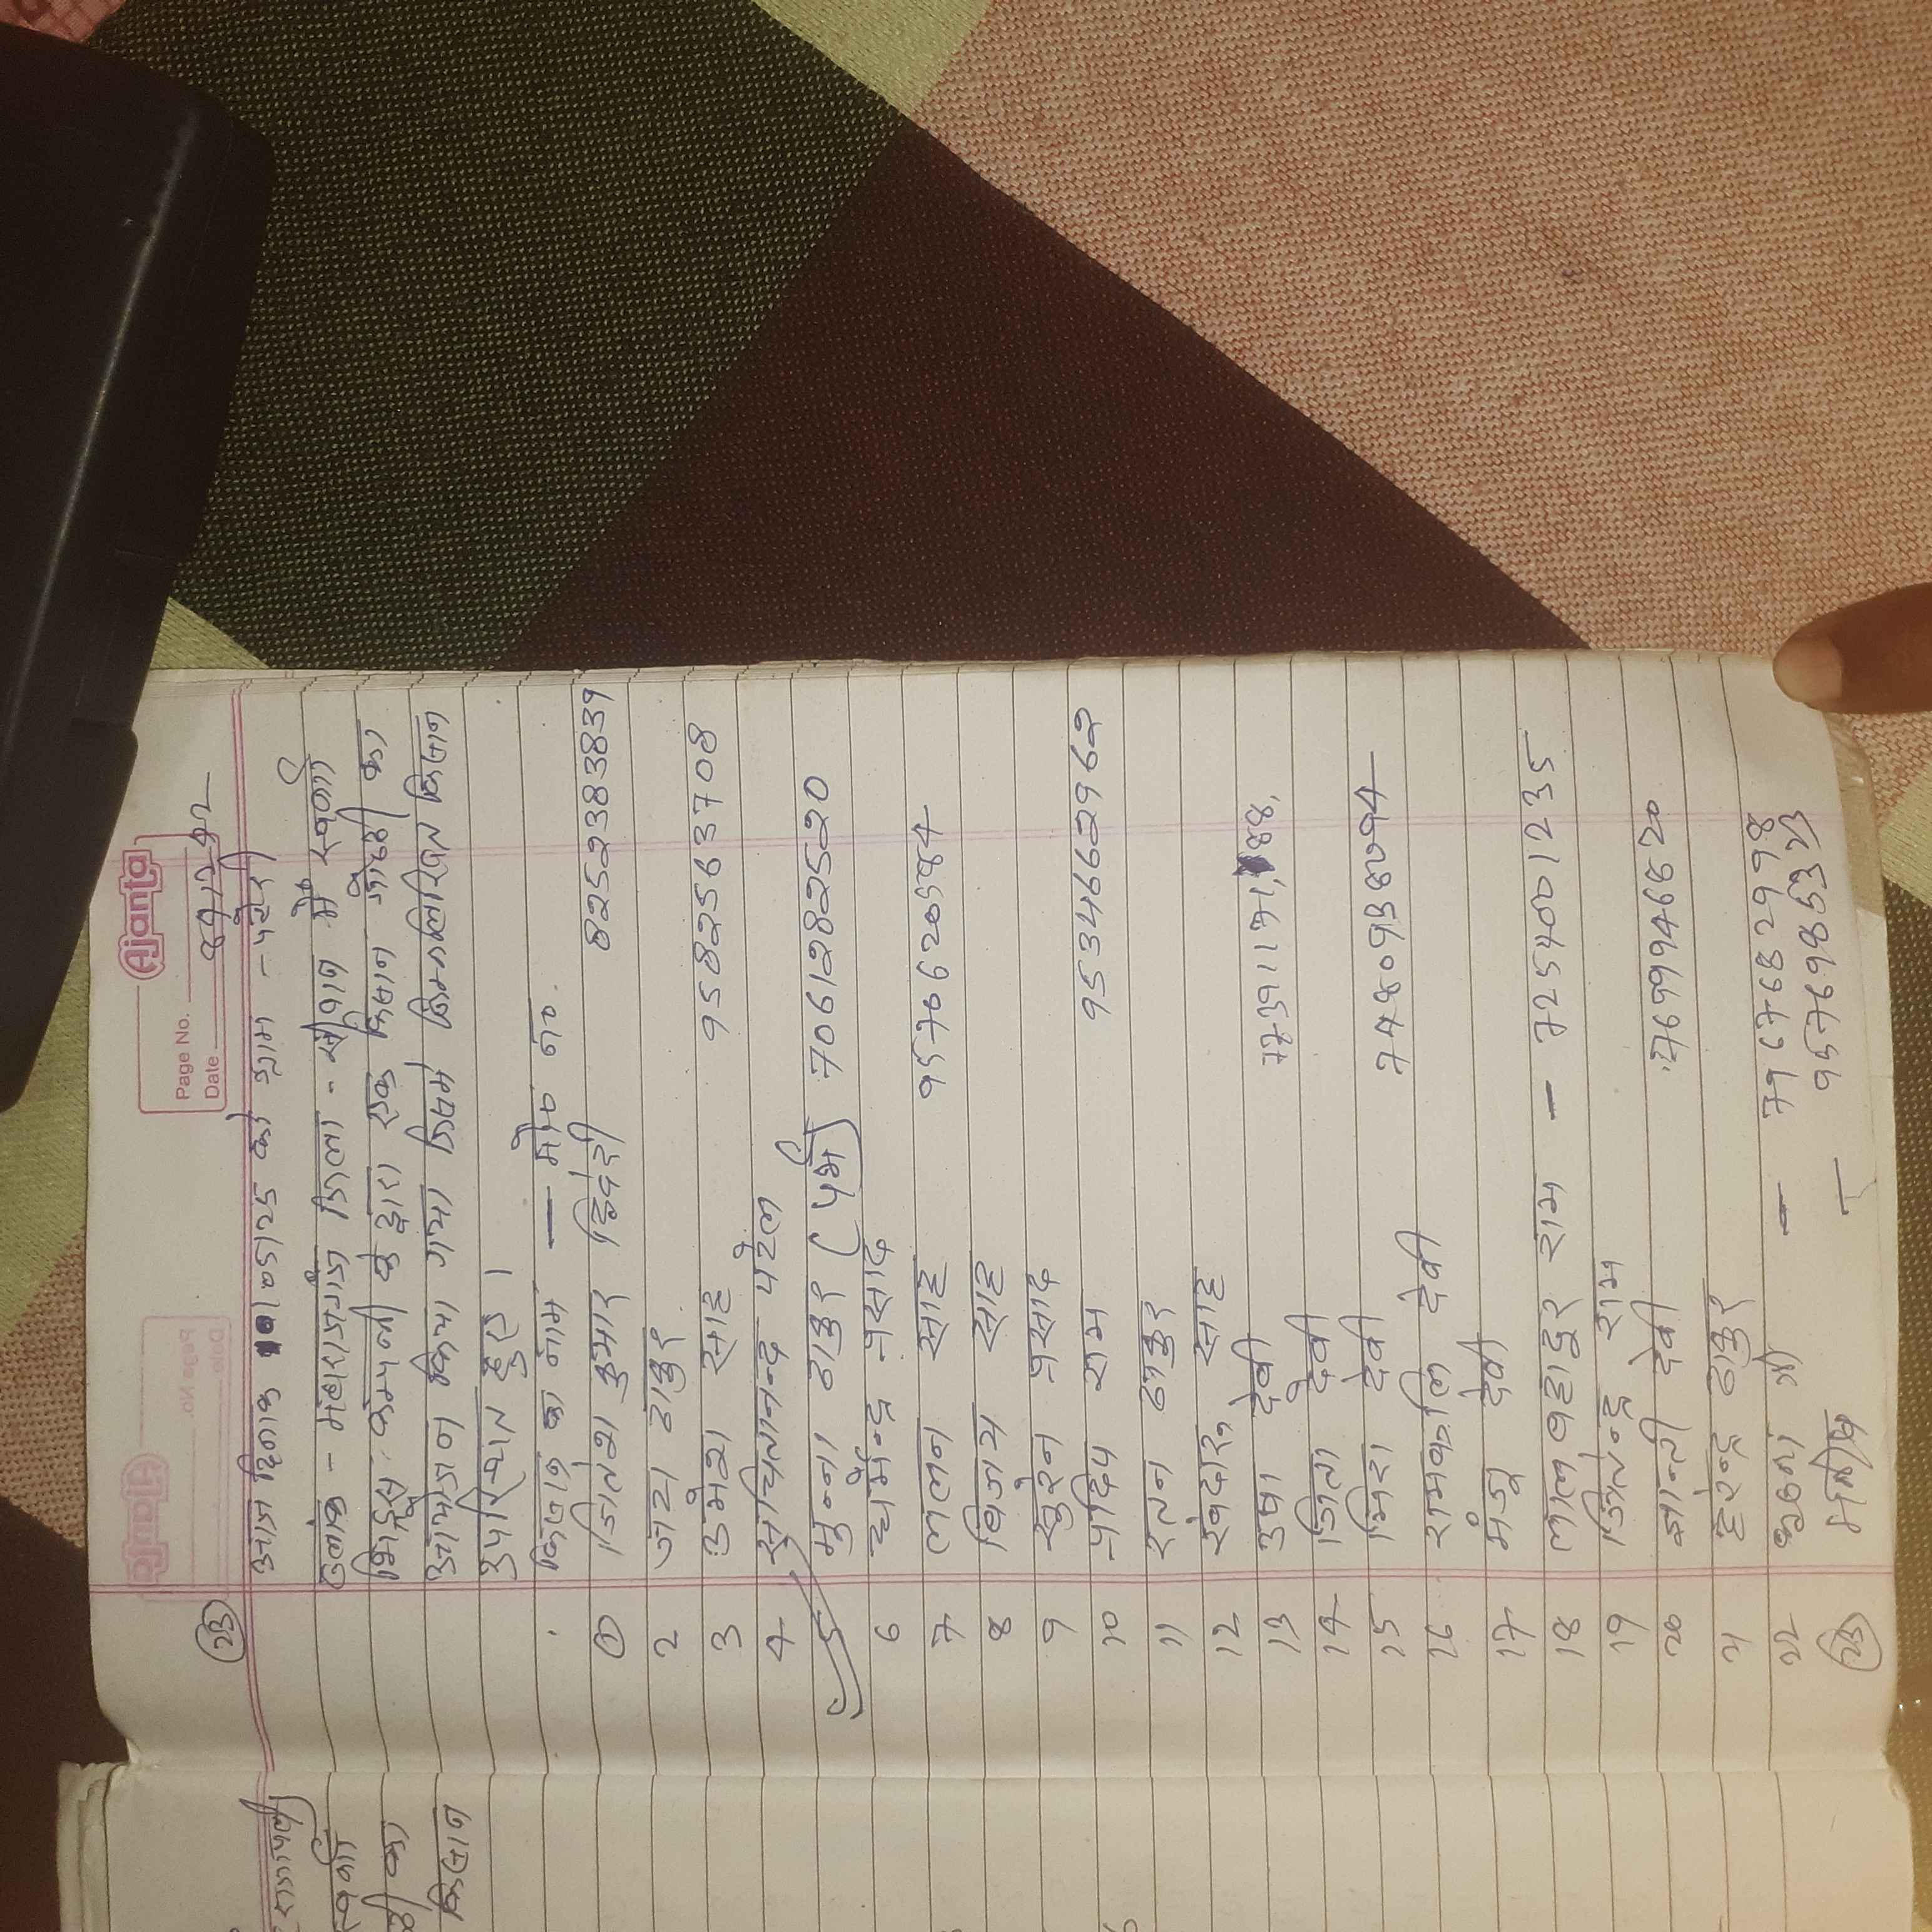 Ajanta
Page No.
Date
(23)
आज दिनांक को ग्राम - पटेरी
ब्लॉक - महाराजगंज जिला - सीवान में स्वर्णा
सिड्स कम्पनी के द्वारा एक किसान गोष्ठी का
आयोजन किया गया जिसमे निम्नलिखित किसान
उपस्थित हुए।
किसान का नाम — मो० नं०.
① जितेश कुमार द्विवेदी 8252383839
2 जय ठाकुर
3 उमेश साह 9582563708
4 सचितानन्द पटेल
5 मुन्ना ठाकुर (पर्मा) 7061282520
6 धर्मेन्द्र प्रसाद
7 ललन साह 9570620584
8 विजय साह
9 सुरेन प्रसाद
10 प्रदिप राम 9534662962
11 रतन ठाकुर
12 साह
13 उषा देवी
14 देवी
15 मिरा देवी
16 रामकलि देवी
17 मंजु देवी
18 लाल बहादुर राम — 7254001235
19 जितेन्द्र राम
20 देवी 7699946620
21 हरेन्द्र ठाकुर
22 जी — 7967682998
(23) — 9576985323
किसान